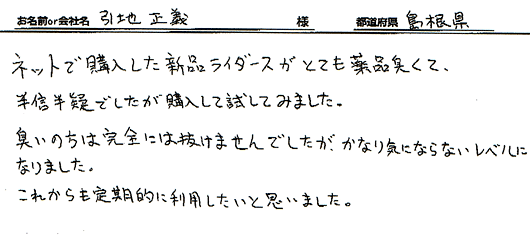 お名前or会社名 引地 正義 様 都道府県 島根県
ネットで購入した新品ライダースがとても薬品臭くて、
半信半疑でしたが購入して試してみました。
臭いのちは完全には抜けませんでしたが、かなり気にならないレベルに
なりました。
これからも定期的に利用したいと思いました。